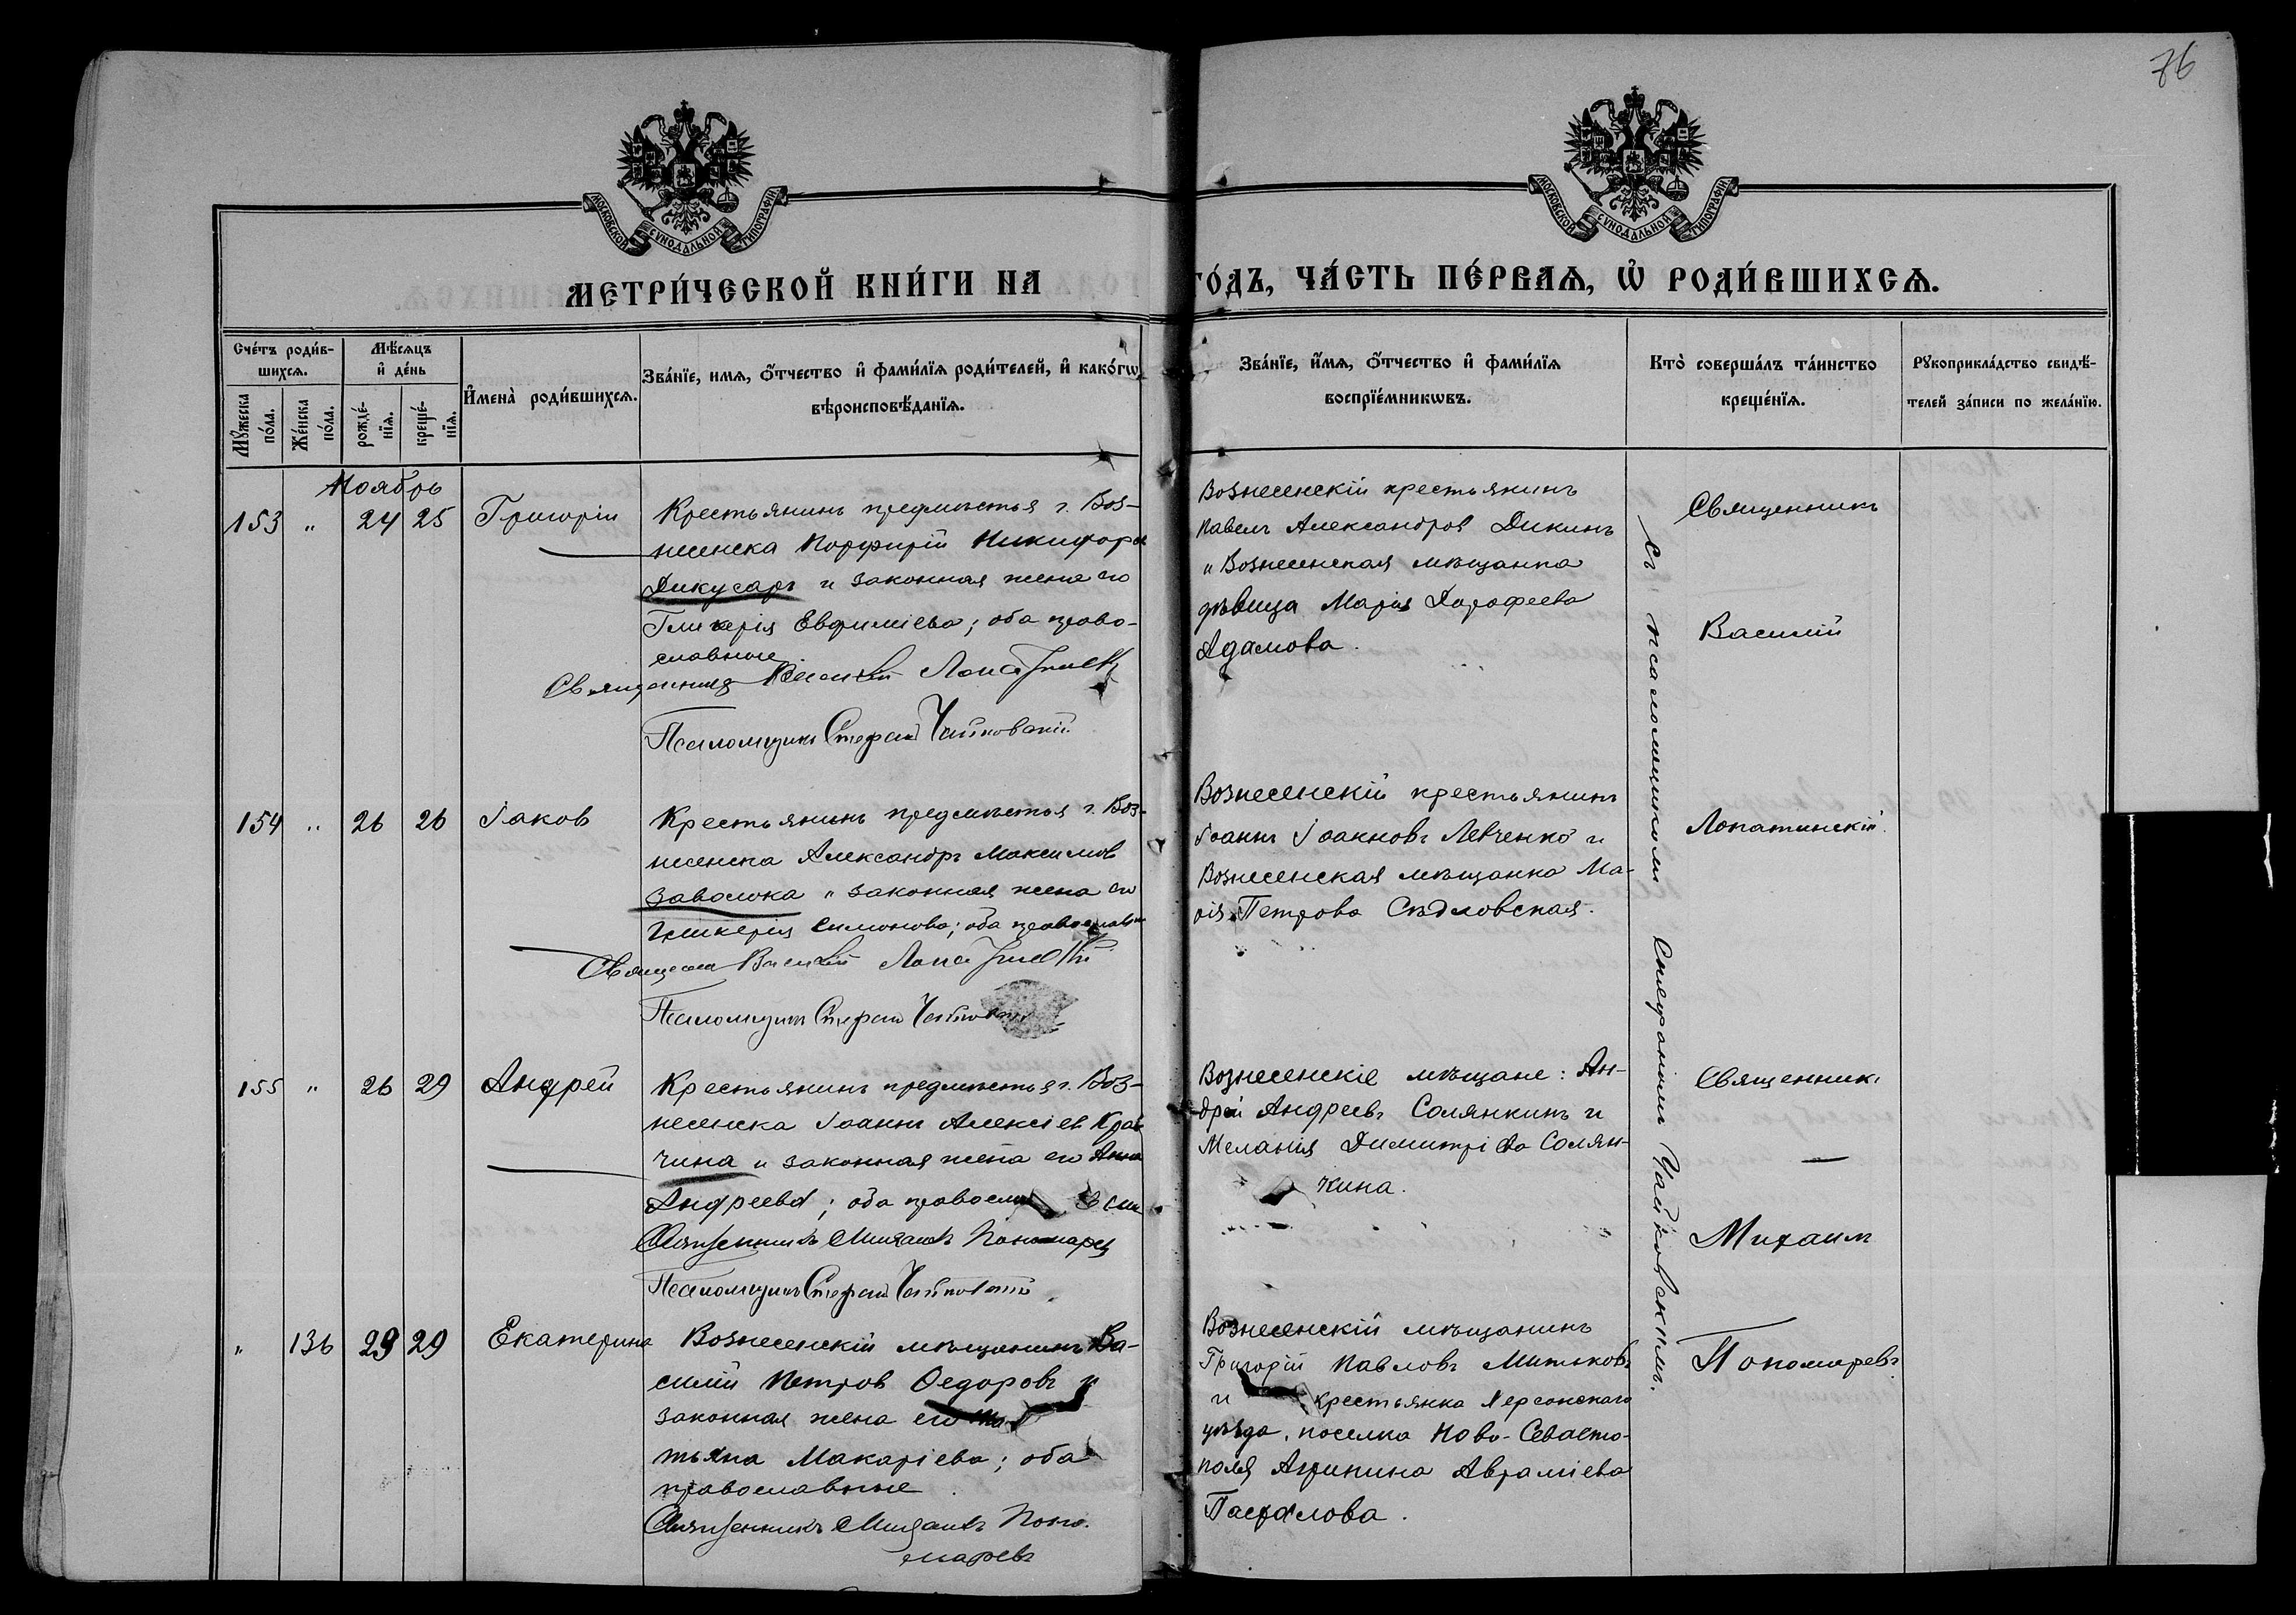 76
МОСКОВСКОЙ СѴНОДАЛЬНОЙ ТИПОГРАФІИ
МОСКОВСКОЙ СѴНОДАЛЬНОЙ ТИПОГРАФІИ
МЕТРИ́ЧЕСКОЙ КНИ́ГИ НА
ГО́ДЪ, ЧА́СТЬ ПЕ́РВАѦ, Ѡ҆ РОДИ́ВШИХСѦ.
Сче́тъ роди́в-
шихсѧ.
Мѣ́сѧцъ
и҆ де́нь
Мꙋ́жеска
по́ла.
Же́нска
по́ла.
рожде́-
нїѧ.
креще́-
нїѧ.
И҆мена̀ роди́вшихсѧ.
Зва́нїе, имѧ, ѻ҆́тчество и҆ фами́лїѧ роди́телей, и҆ како́гѡ
вѣроисповѣ́данїѧ.
Зва́нїе, и҆́мѧ, ѻ҆́тчество и҆ фами́лїѧ
воспрїе́мникѡвъ.
Кто̀ соверша́лъ та́инство
креще́нїѧ.
Рꙋкоприкла́дство свидѣ́-
телей за́писи по жела́нїю.
Ноябрь
153 " 24 25 Григорій
Крестьянинъ предмѣстья г. Воз-
несенска Порфирій Никифоров
Дикусаръ и законная жена его
Гликерія Евфиміева; оба право-
славные.
Священникъ Василій Лопатинскій
Псаломщикъ Стефанъ Чайковскій
Вознесенскій крестьянинъ
Павелъ Александров Дикинъ
и Вознесенская мѣщанка
дѣвица Марія Дорофеева
Адамова.
Священникъ
Василій
Лопатинскій.
съ псаломщикомъ Стефаномъ Чайковскимъ.
154 " 26 26 Іаков
Крестьянинъ предмѣстья г. Воз-
несенска Александръ Максимов
Заволока и законная жена его
Гликерія Симонова; оба православн
Священник Василій Лопатинскій
Псаломщикъ Стефанъ Чайковскій
Вознесенскій крестьянинъ
Іоаннъ Іоанновъ Левченко и
Вознесенская мѣщанка Ма-
рія Петрова Сѣдловская.
155 " 26 29 Андрей
Крестьянинъ предмѣстья г. Воз-
несенска Іоаннъ Алексіев Крав
чина и законная жена его Анна
Андреева; оба правосла
Священникъ Михаилъ Пономарев
Псаломщикъ Стефанъ Чайковскій
Вознесенскіе мѣщане: Ан-
дрей Андреевъ Солянкинъ и
Меланія Димитріева Солян-
кина.
Священникъ
Михаилъ
Пономаревъ
" 136 29 29 Екатерина
Вознесенскій мѣщанинъ Ва-
силій Петров Ѳедоровъ и
законная жена его Та
тьяна Макаріева; оба
православные.
Священникъ Михаилъ Поно-
маревъ
Вознесенскій мѣщанинъ
Григорій Павловъ Митьковъ
и крестьянка Херсонскаго
уѣзда, поселка Ново-Севасто-
поля Агрипина Авраміева